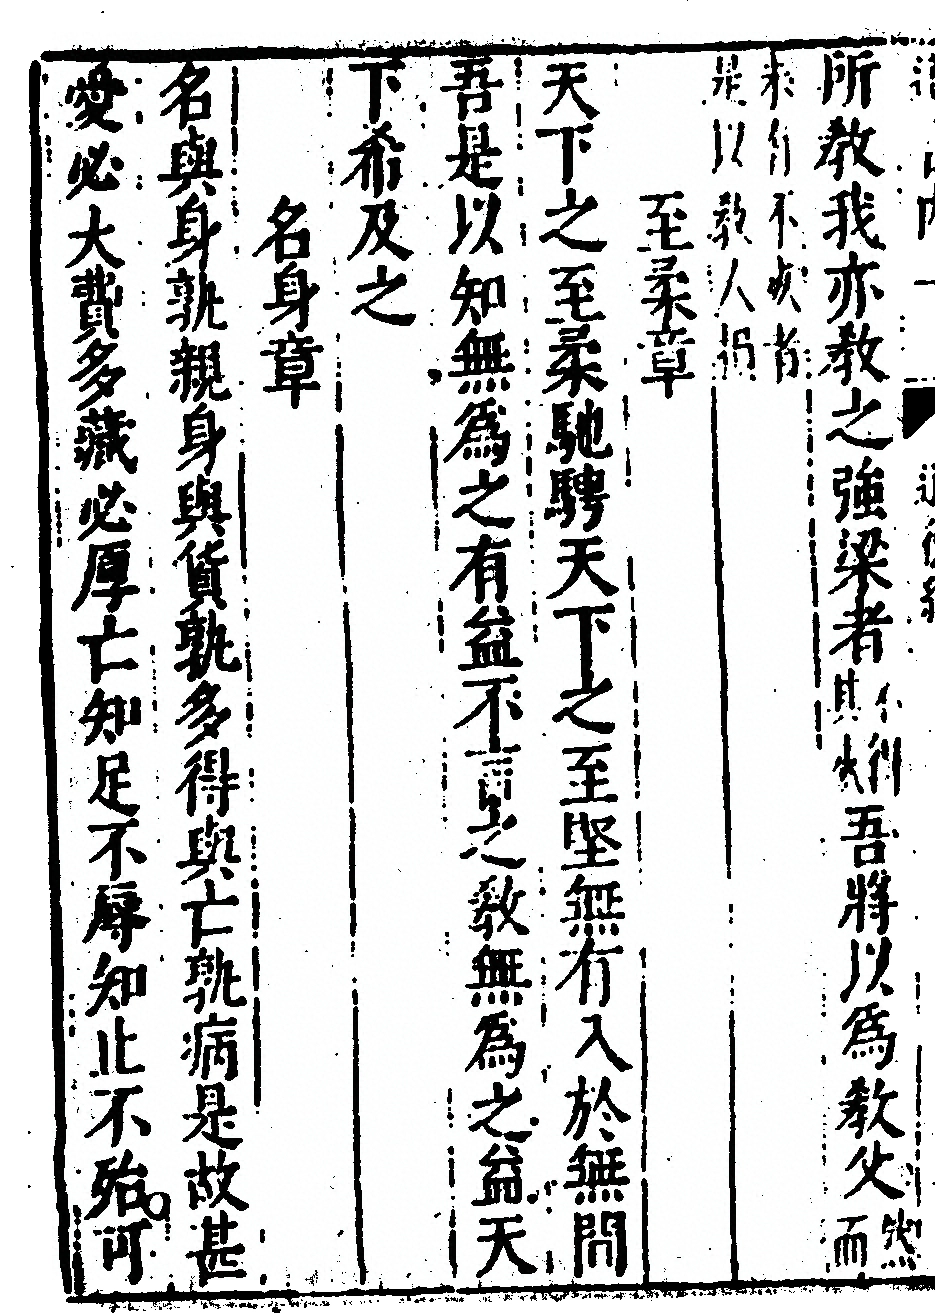 所教我亦教之強梁者不得其死吾將以爲教父然而
未有不疾者是以教人損
至柔章
天下之至柔馳騁天下之至堅無有入於無間
吾是以知無爲之有益不言之教無爲之益天
下希及之
名身章
名與身孰親身與貨孰多得與亡孰病是故甚
愛必大費多藏必厚亡知足不辱知止不殆可